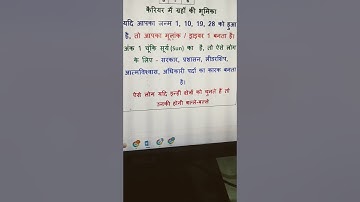 कैरियर में ग्रहों की भूमिका
यदि आपका जन्म 1, 10, 19, 28 को हुआ
है, तो आपका मूलांक / ड्राइवर 1 बनता है।
अंक 1 चूंकि सूर्य (Sun) का है, तो ऐसे लोगों
के लिए - सरकार, प्रशासन, लीडरशिप,
आत्मविश्वास, अधिकारी पदों का कारक बनता
है।
ऐसे लोग यदि इन्हीं क्षेत्रों को चुनते हैं तो
उनकी होगी बल्ले-बल्ले